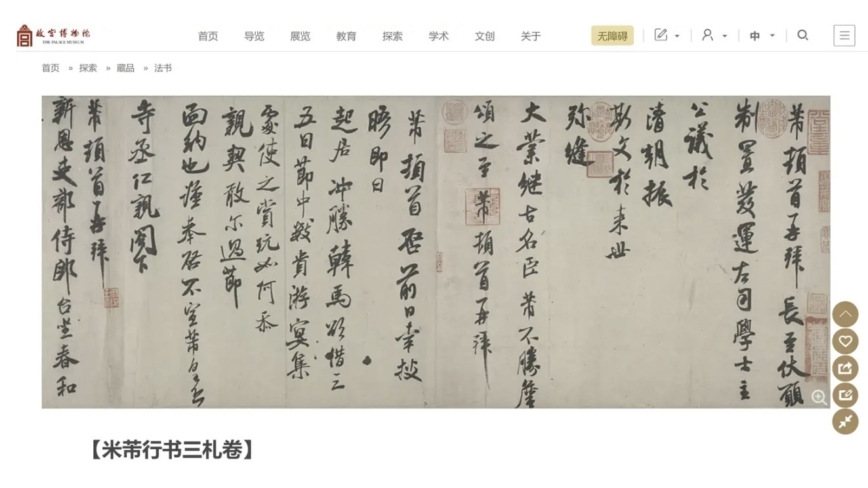 故宫博物院
THE PALACE MUSEUM
首页 导览 展览 教育 探索 学术 文创 关于 无障碍 中
首页 » 探索 » 藏品 » 法书
芾頓首再拜長至伏願
制置發運左司學士主
公議於
清朝振
斯文於來世
弥縫
大業継古名臣芾不勝詹
頌之至芾頓首再拜
芾頓首啓前日幸披
晤即日
起居冲勝韓馬欲借三
五日節中數肯游宴集
處使之賞玩如何忝
親契敢尔過節
面納也謹奉啓不宣芾
寺丞仁親閣下
芾頓首再拜
新恩吏部侍郎台坐春和
【米芾行书三札卷】